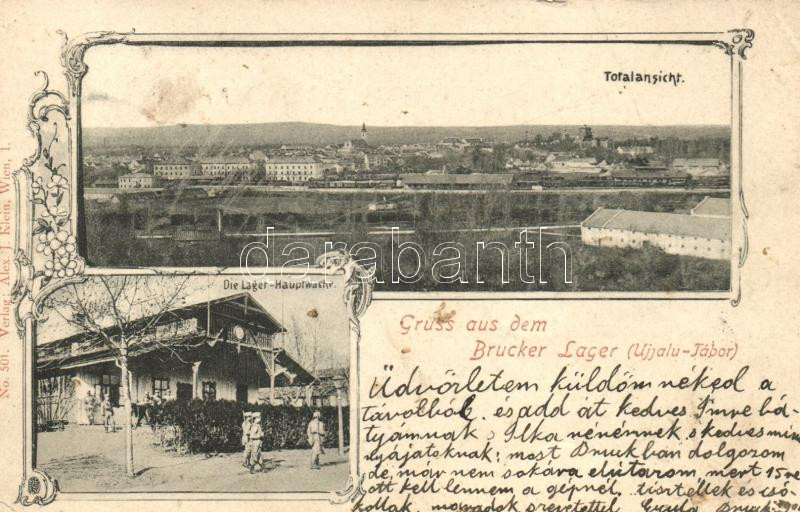 Totalansicht.
Die Lager-Hauptwache.
No. 501. Verlag: Alex. J. Klein, Wien, I.
darabanth
Gruss aus dem
Brucker Lager (Ujjalu-Tábor)
Üdvözletem küldöm néked a
távolból, és add át kedves Imre bá-
tyámnak s Ilka nénémnek s kedves
nyájatoknak; most Bruckban dolgozom
de, már nem sokára elutazom, mert 15
ott kell lennem a gépnél. tisztellek és csó-
kollak, maradok szeretettel Gyula Bruck